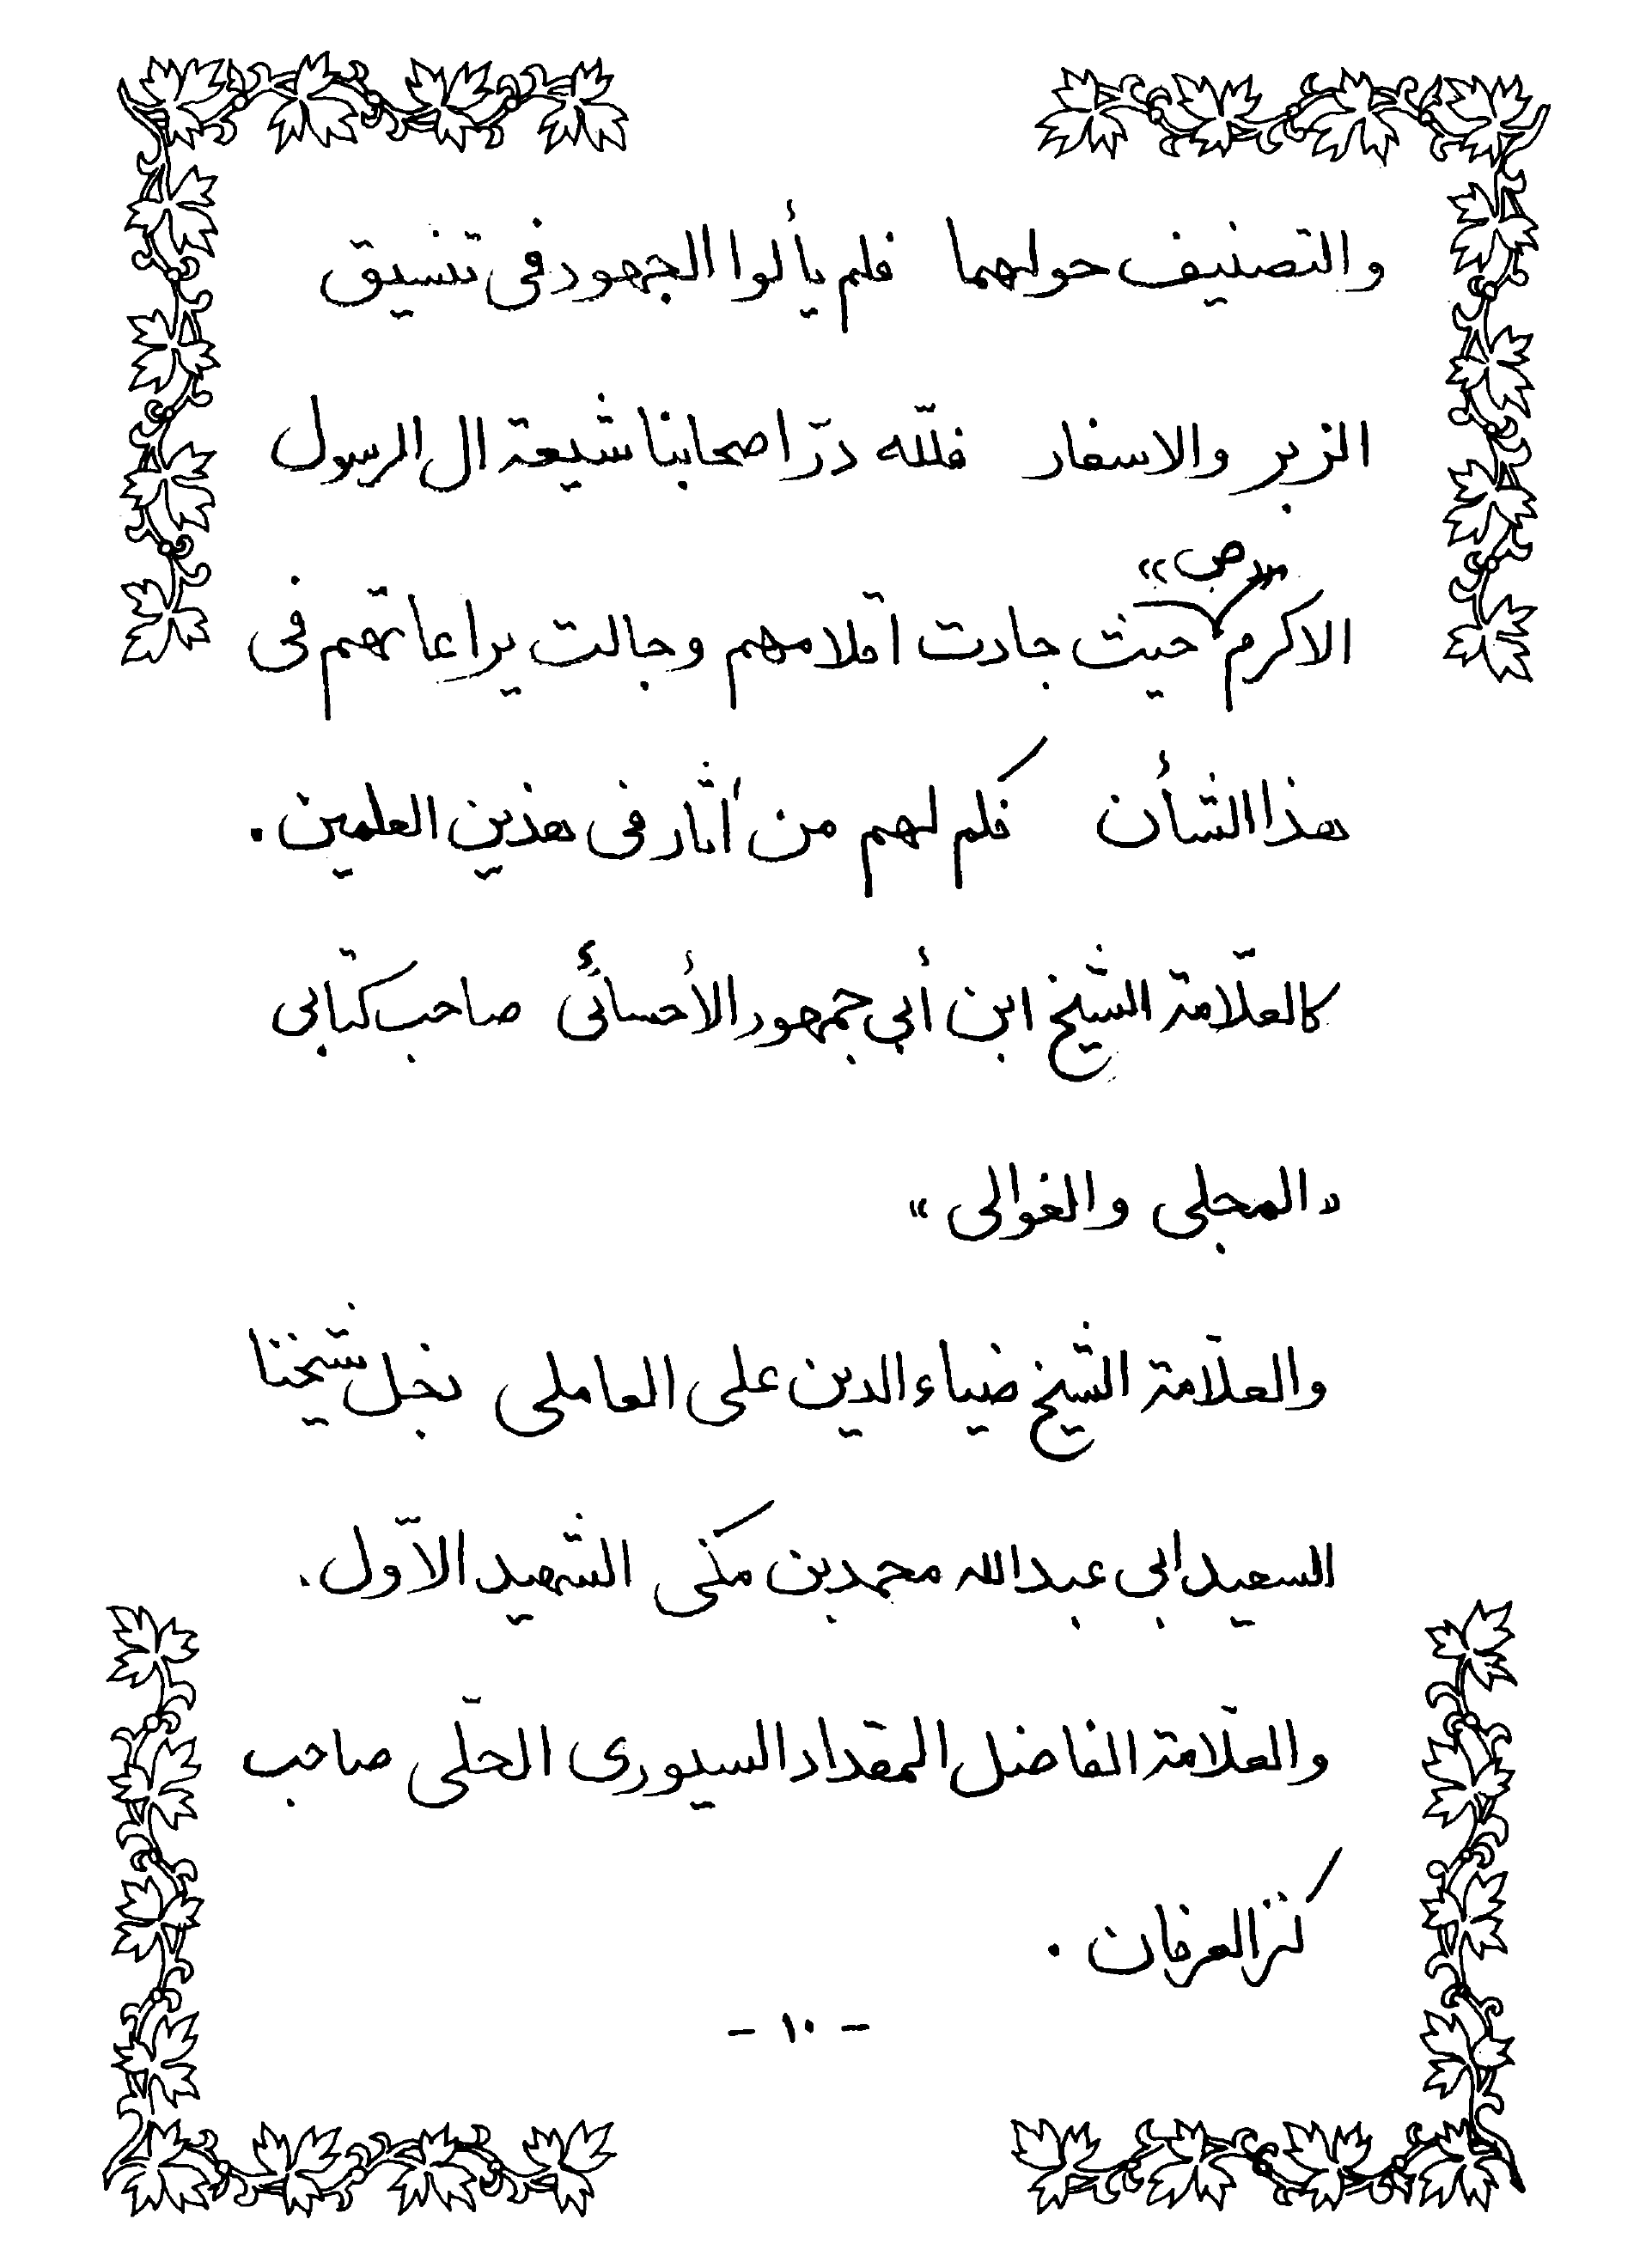 والتصنيف حولهما فلم يألوا الجهود فى تنسيق
الزبر والاسفار فللّه درّ اصحابنا شيعة ال الرسول
الاكرم «ص» حيث جادت اقلامهم وجالت يراعاتهم فى
هذا الشأن فكم لهم من أثار فى هذين العلمين .
كالعلّامة الشيخ ابن أبي جمهور الأحسائى صاحب كتابى
«المجلى والغوالى»
والعلّامة الشيخ ضياء الدين على العاملى نجل شيخنا
السعيد ابى عبدالله محمد بن مكى الشهيد الاوّل .
والعلّامة الفاضل المقداد السيورى الحلّى صاحب
كنز العرفان .
- ١٠ -